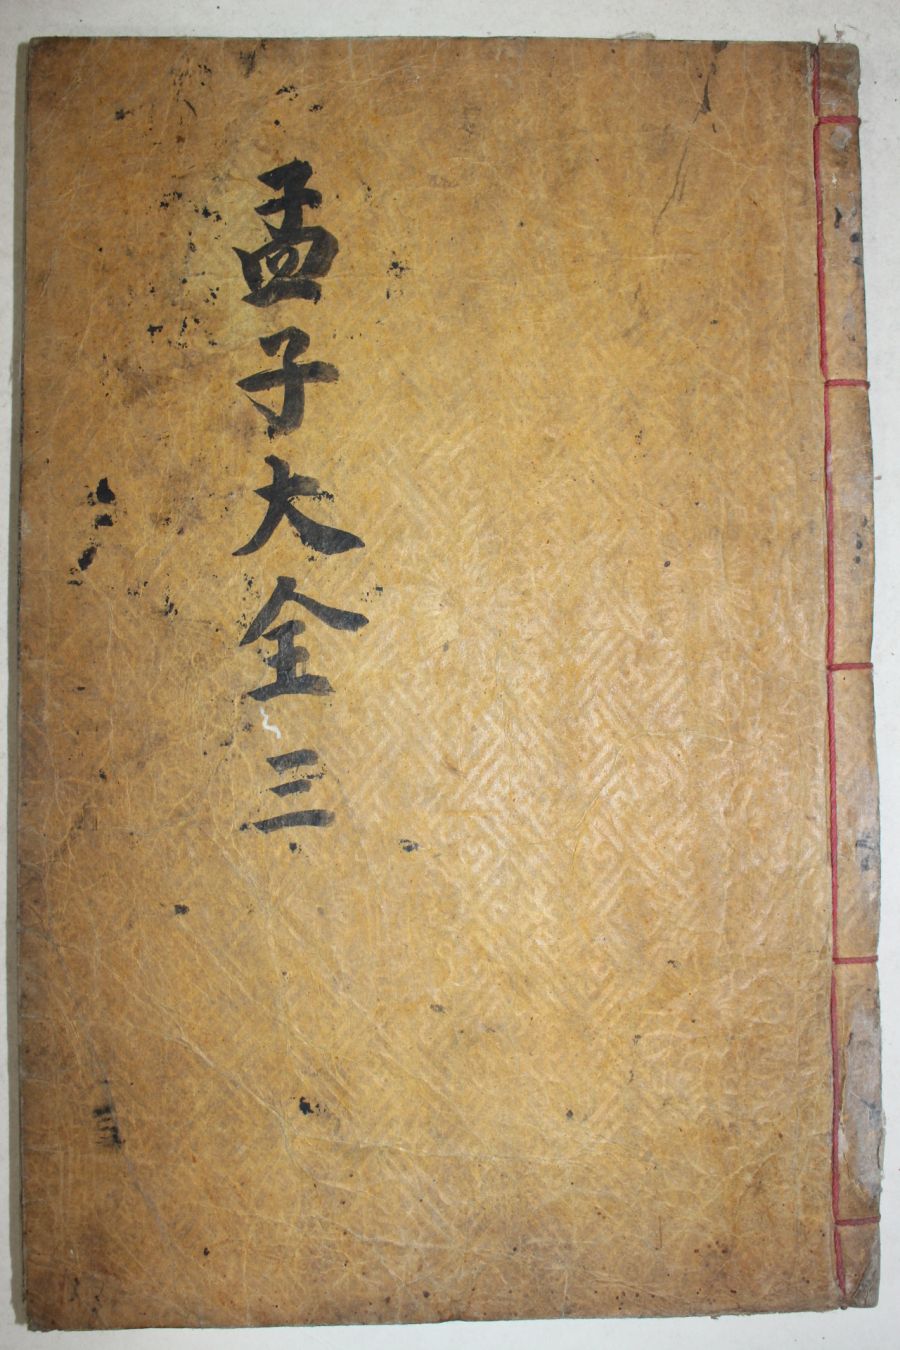 孟子大全 三